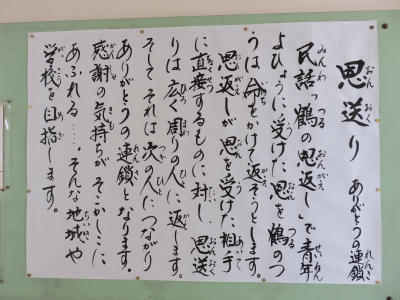 恩送り ありがとうの連鎖
民話「鶴の恩返し」で青年
よひょうに受けた恩を鶴のつ
うは命をかけて返そうとします。
恩返しが恩を受けた相手
に直接するものに対し、恩送
りは広く周りの人に返します。
そしてそれは次の人につながり
ありがとうの連鎖となります。
感謝の気持ちがそこかしこに
あふれる…、そんな地域や
学校を目指します。